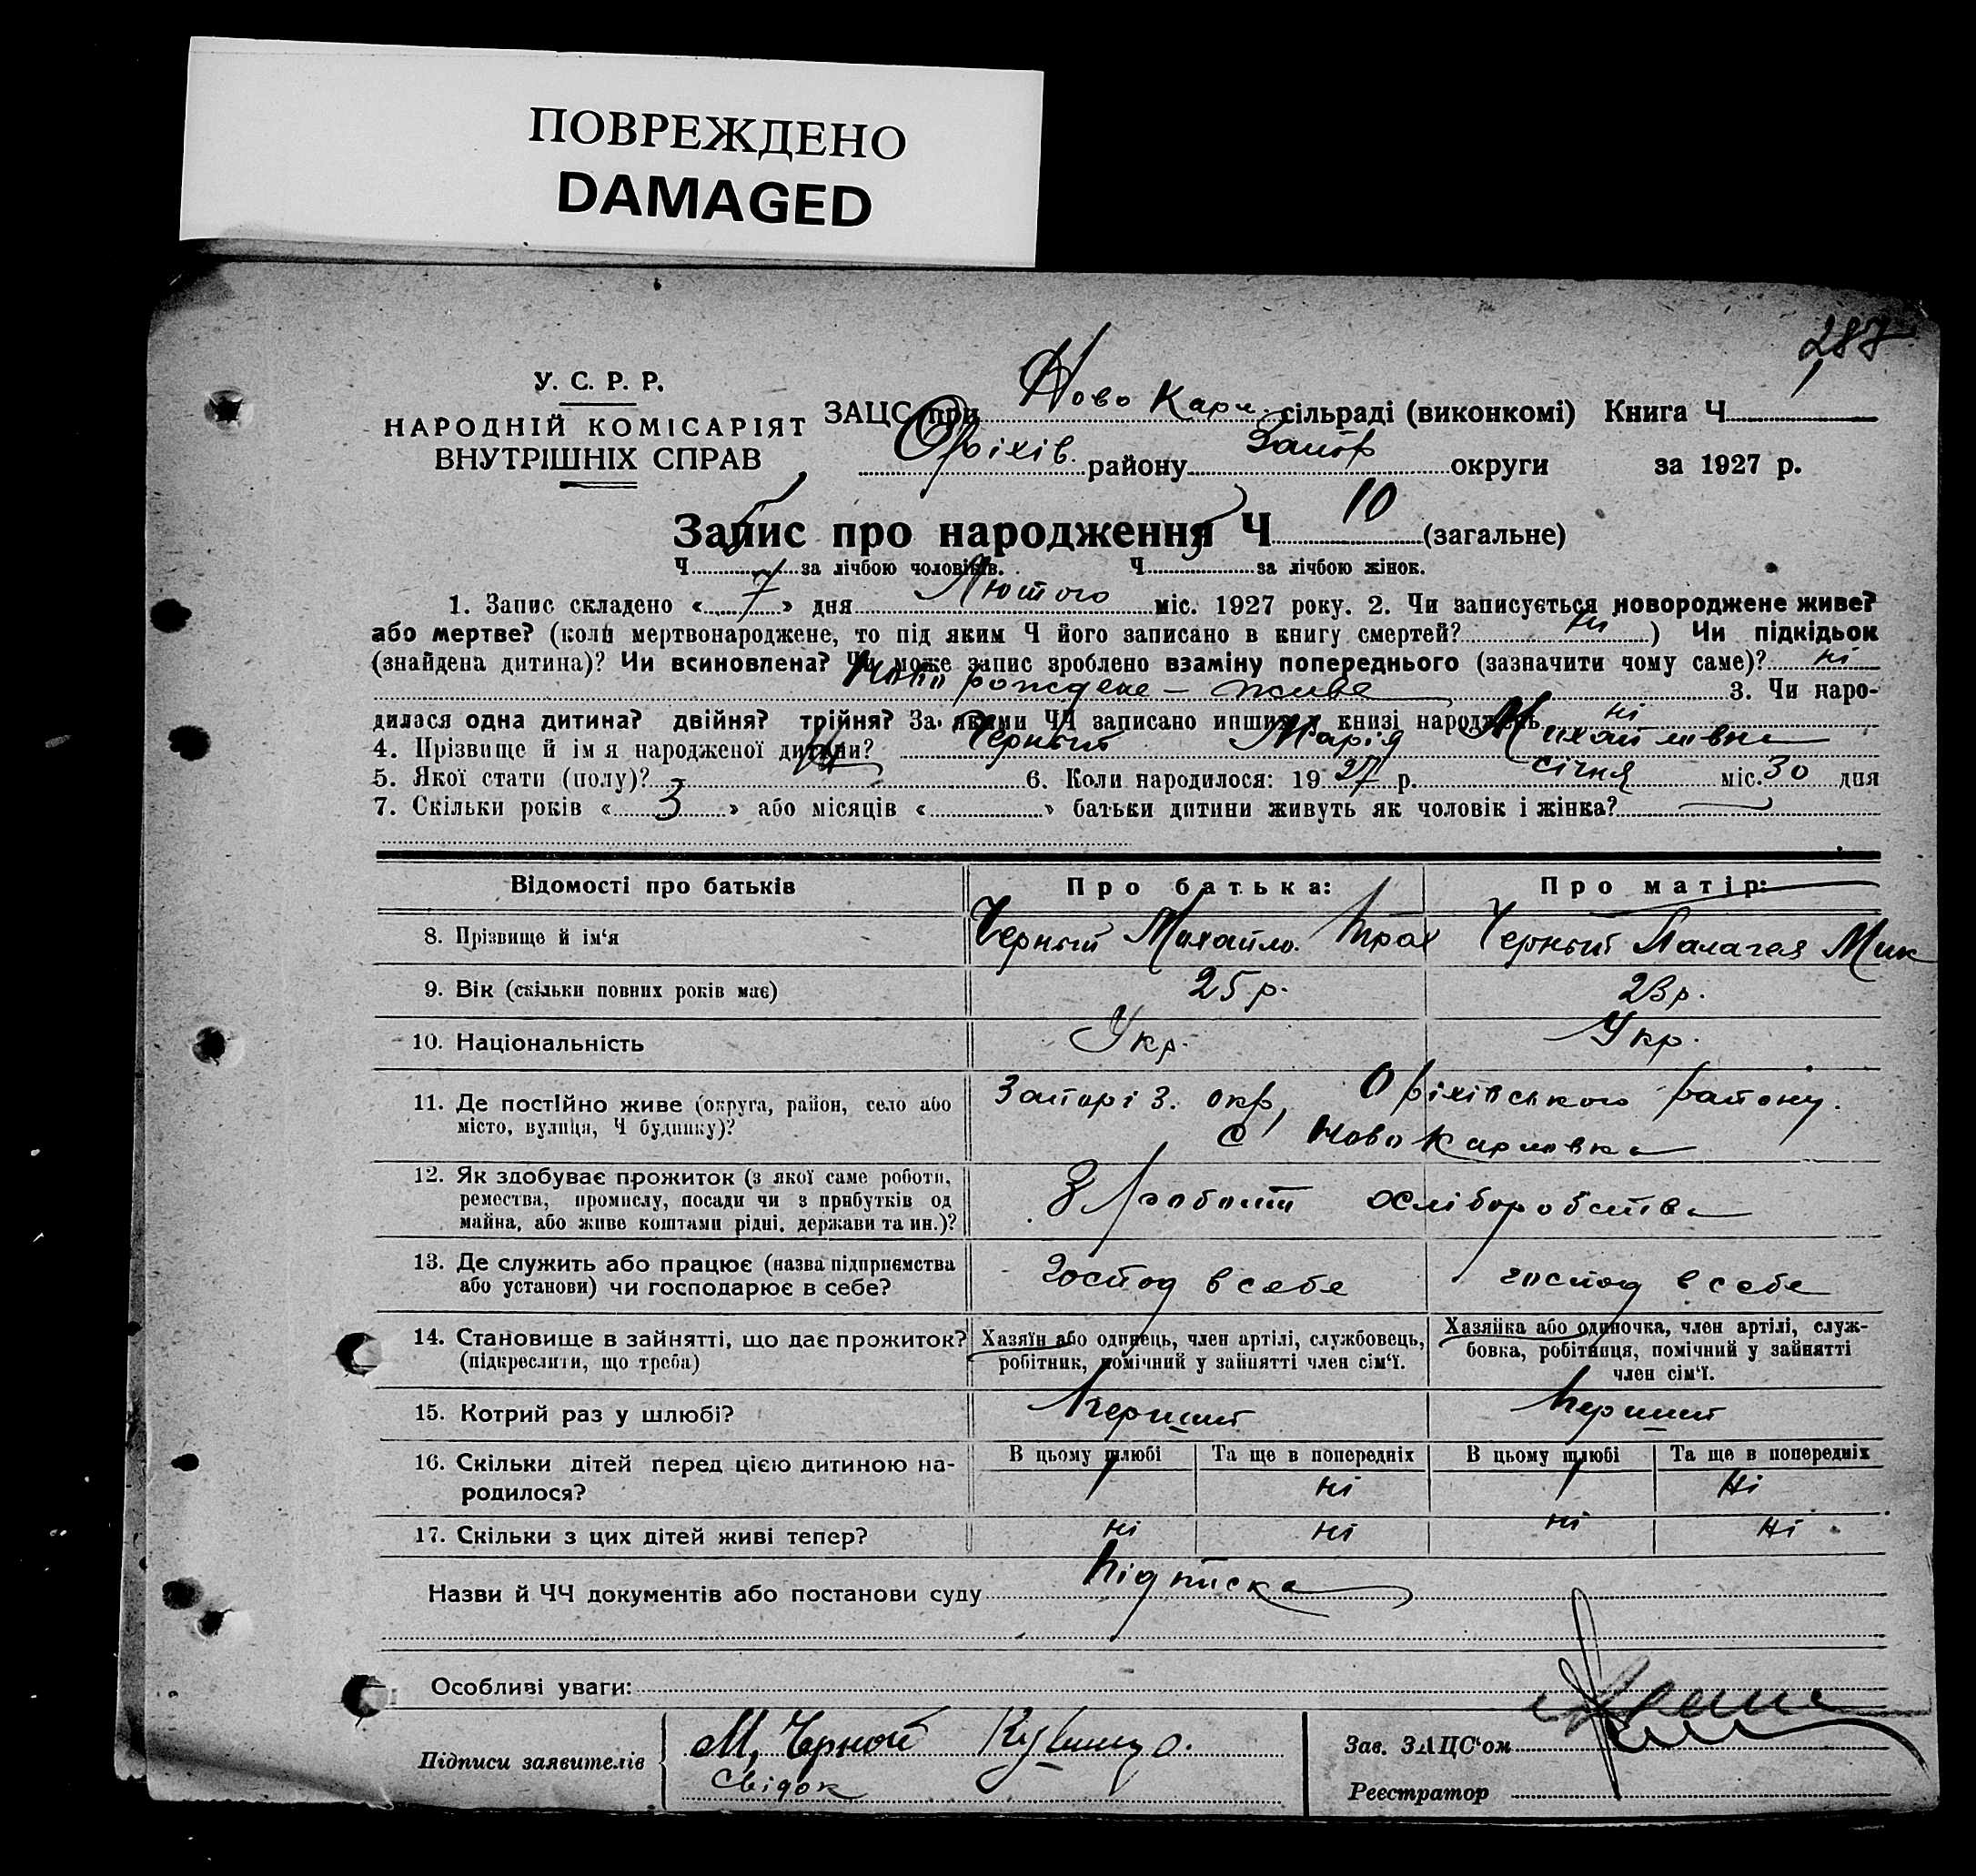 ПОВРЕЖДЕНО
DAMAGED
287
У. С. Р. Р.
НАРОДНІЙ КОМІСАРІЯТ
ВНУТРІШНІХ СПРАВ
ЗАЦС при Ново Карл. сільраді (виконкомі) Книга Ч
Оріхів. району Запор округи за 1927 р.
Запис про народження Ч 10 (загальне)
Ч за лічбою чоловіків. Ч за лічбою жінок.
1. Запис складено « 7 » дня Лютого міс. 1927 року. 2. Чи записується новороджене живе?
або мертве? (коли мертвонароджене, то під яким Ч його записано в книгу смертей? ні ) Чи підкідьок
(знайдена дитина)? Чи всиновлена? Чи може запис зроблено взаміну попереднього (зазначити чому саме)? ні
Ново рождене – живе 3. Чи наро-
дилася одна дитина? двійня? трійня? За якими ЧЧ записано инших у книзі народжень ні
4. Прізвище й ім я народженої дитини? Черный Марія Михайлівна
5. Якої стати (полу)? 6. Коли народилося: 1927 р. січня міс. 30 дня
7. Скільки років « 3 » або місяців « » батьки дитини живуть як чоловік і жінка?
Відомості про батьків Про батька: Про матір:
8. Прізвище й ім‘я Черный Михайло. Трох Черный Палагея Мик
9. Вік (скільки повних років має) 25 р. 23 р.
10. Національність Укр. Укр.
11. Де постійно живе (округа, район, село або
місто, вулиця, Ч будинку)?
Запоріз. окр, Оріхівського району.
с Ново Карловка
12. Як здобуває прожиток (з якої саме роботи,
ремества, промислу, посади чи з прибутків од
майна, або живе коштами рідні, держави та ин.)?
З робот хліборобства
13. Де служить або працює (назва підприємства
або установи) чи господарює в себе?
Господ в себе господ в себе
14. Становище в зайнятті, що дає прожиток?
(підкреслити, що треба)
Хазяїн або одинець, член артілі, службовець,
робітник, помічний у зайнятті член сім‘ї.
Хазяйка або одиночка, член артілі, служ-
бовка, робітниця, помічний у зайнятті
член сім‘ї.
15. Котрий раз у шлюбі? Перший Перший
16. Скільки дітей перед цією дитиною на-
родилося?
В цьому шлюбі Та ще в попередніх В цьому шлюбі Та ще в попередніх
1 ні 1 Ні
17. Скільки з цих дітей живі тепер? ні ні ні Ні
Назви й ЧЧ документів або постанови суду Підписка
Особливі уваги:
Підписи заявителів М. Черной
Свідок
Зав. ЗАЦС‘ом
Реєстратор